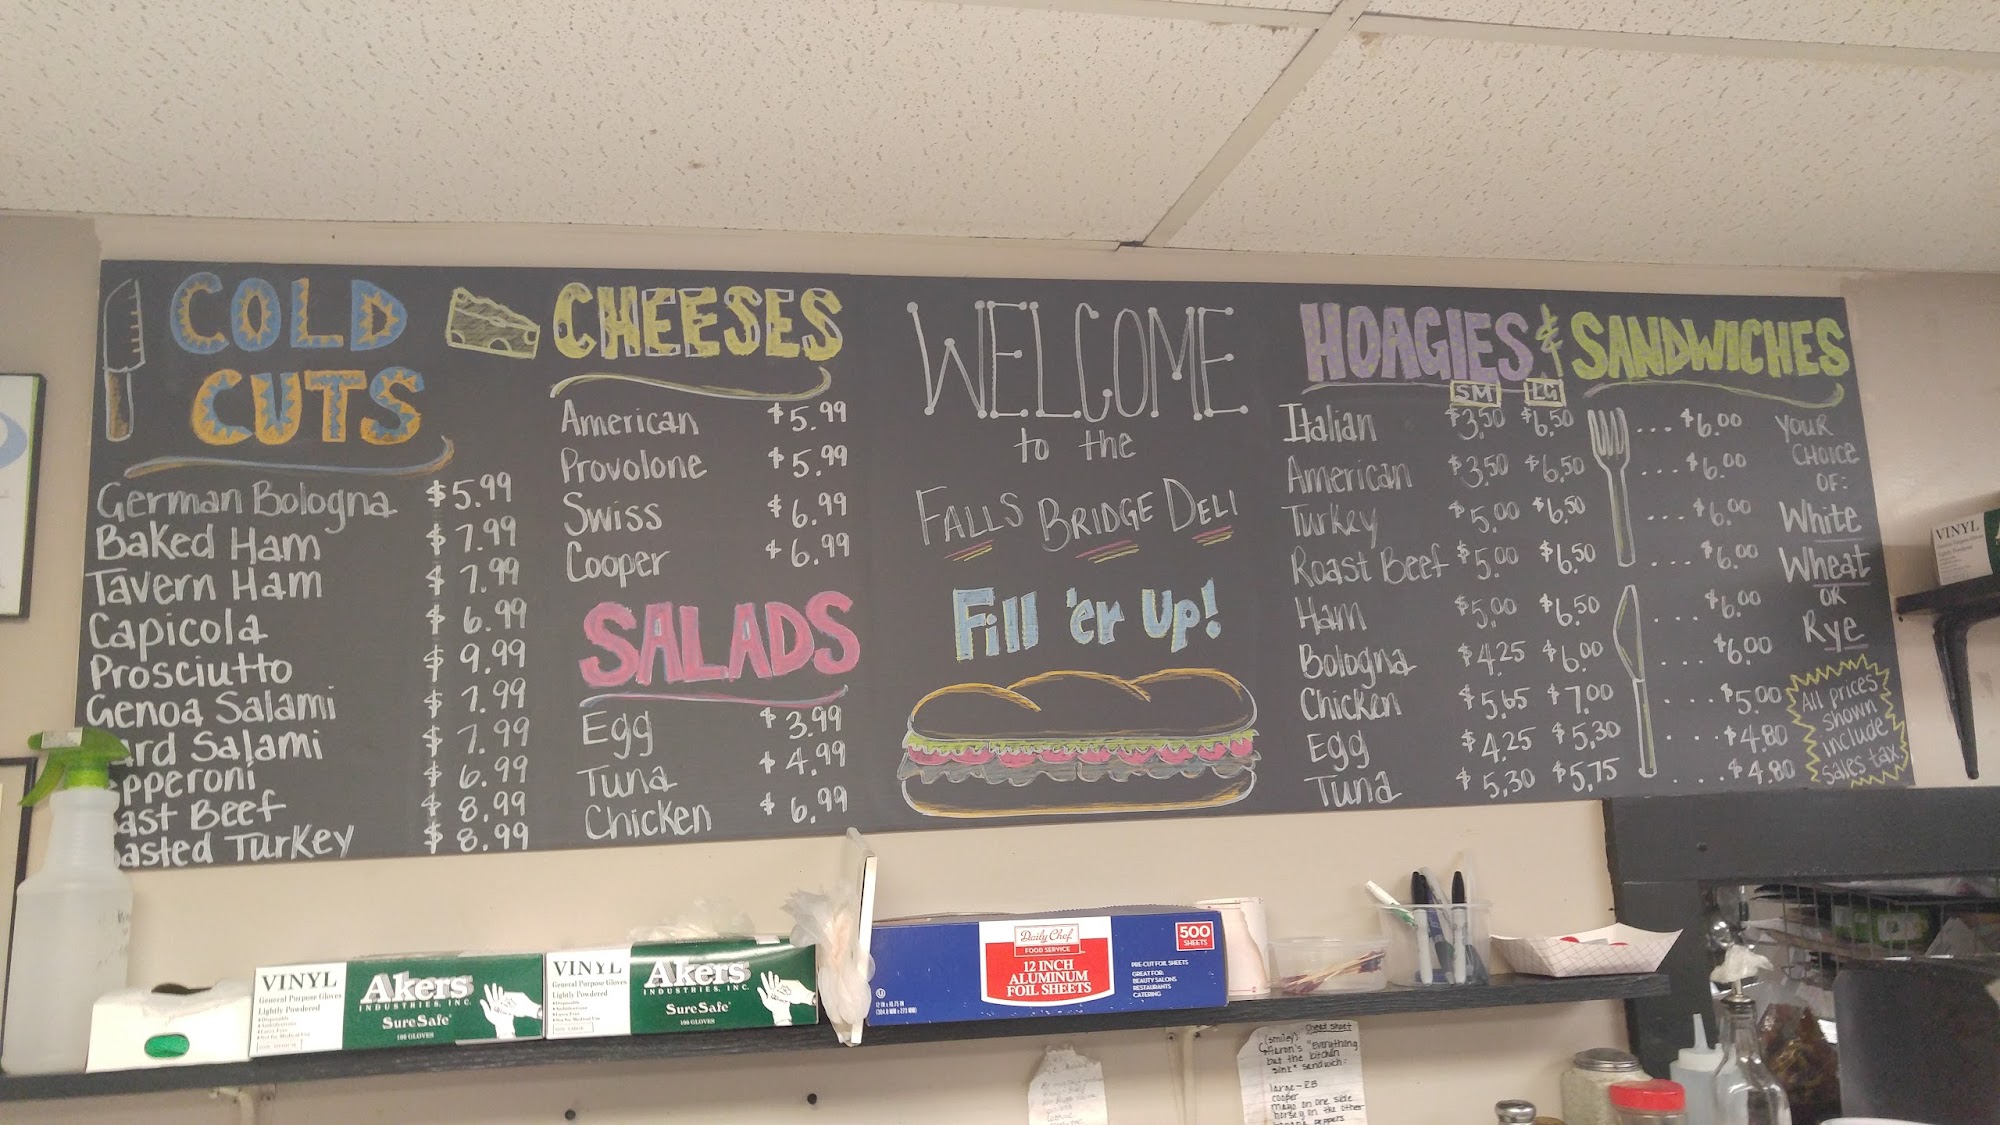 COLD
CUTS
German Bologna $5.99
Baked Ham $7.99
Tavern Ham $7.99
Capicola $6.99
Prosciutto $9.99
Genoa Salami $7.99
ard Salami $7.99
pperoni $6.99
ast Beef $8.99
asted Turkey $8.99
CHEESES
American $5.99
Provolone $5.99
Swiss $6.99
Cooper $6.99
SALADS
Egg $3.99
Tuna $4.99
Chicken $6.99
WELCOME
to the
FALLS BRIDGE DELI
Fill 'er Up!
HOAGIES & SANDWICHES
SM LG
Italian $3.50 $6.50 ... $6.00
American $3.50 $6.50 ... $6.00
Turkey $5.00 $6.50 ... $6.00
Roast Beef $5.00 $6.50 ... $6.00
Ham $5.00 $6.50 ... $6.00
Bologna $4.25 $6.00 ... $6.00
Chicken $5.65 $7.00 ... $5.00
Egg $4.25 $5.30 ... $4.80
Tuna $5.30 $5.75 ... $4.80
YOUR
CHOICE
OF:
White
Wheat
OR
Rye
All prices
shown
include
sales tax.
VINYL
General Purpose Gloves
Lightly Powdered
Akers
INDUSTRIES, INC.
SureSafe
100 GLOVES
VINYL
General Purpose Gloves
Lightly Powdered
Akers
INDUSTRIES, INC.
SureSafe
100 GLOVES
Daily Chef
FOOD SERVICE
12 INCH
ALUMINUM
FOIL SHEETS
500
SHEETS
PRE-CUT FOIL SHEETS
GREAT FOR:
BEAUTY SALONS
RESTAURANTS
CATERING
VINYL
cheat sheet
(smiley)
Aaron's "everything
but the kitchen
sink" sandwich:
large - RB
cooper
mayo on one side
horsey on the other
peppers